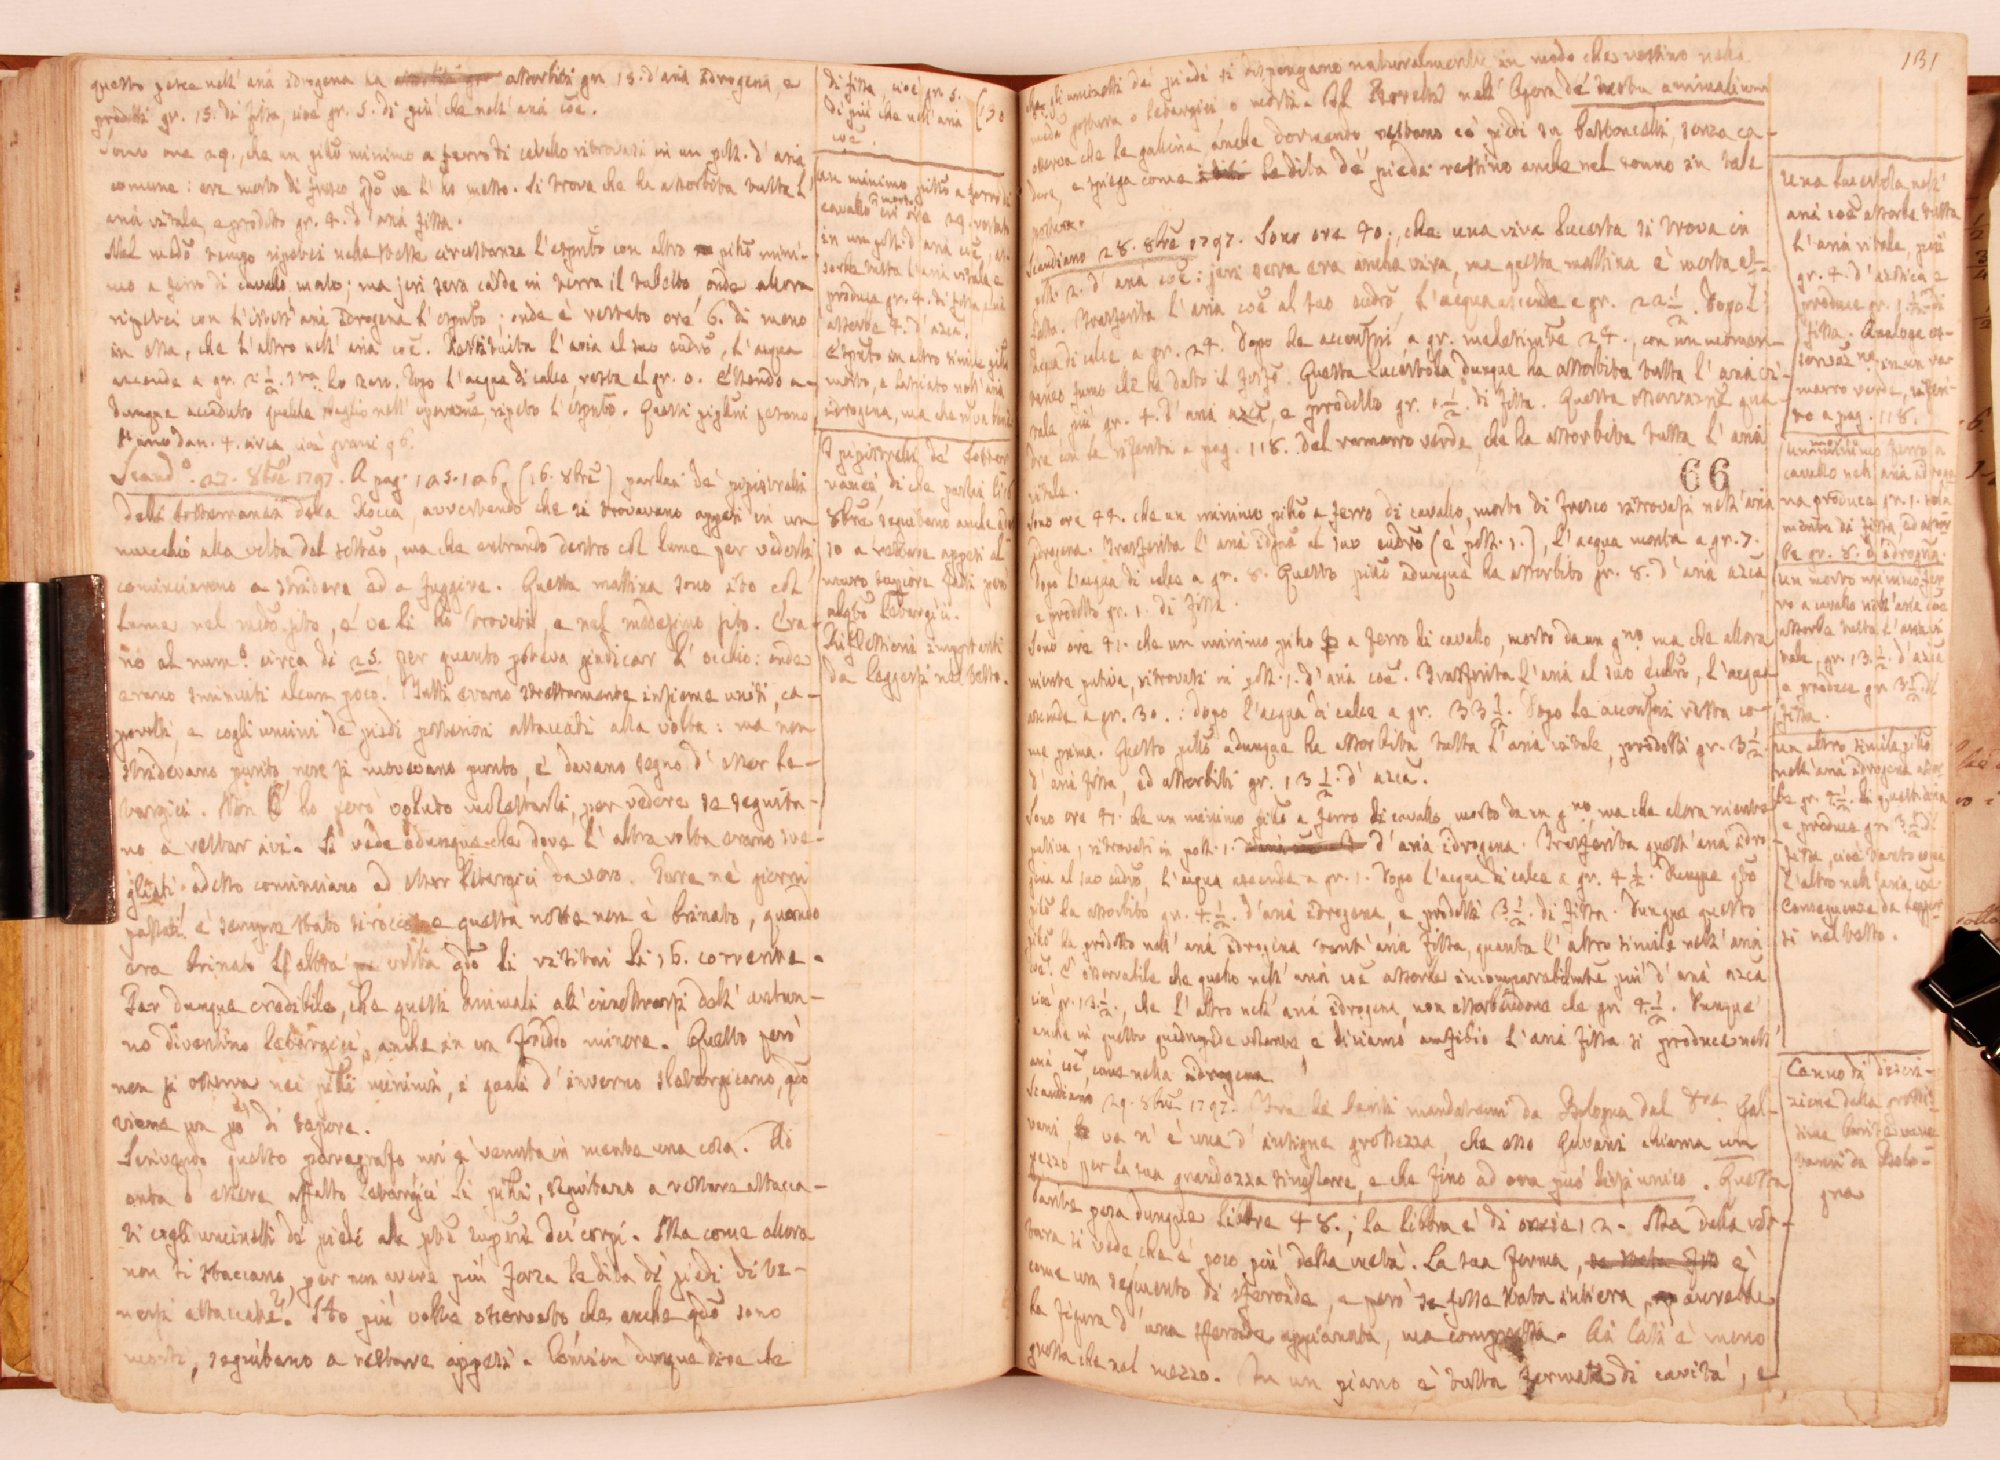 questo pesce nell' aria idrogena ha assorbiti gr. 15. d'aria idrogena, e
prodotti gr. 15. di fissa, cioè gr. 5. di più che nell' aria coe.
Sono ore 29., che un pillo minimo a ferro di cavallo ritrovasi in un poll. d'aria
comune: era morto di fresco qdo ve l' ho messo. Si trova che ha assorbita tutta l'
aria vitale, e prodotto gr. 4. d' aria fissa.
Nel modo tengo ripetei nelle stesse circostanze l'espmto con altro pillo mini-
mo a ferro di cavallo morto; ma jeri sera cadde in terra il tubetto, onde allora
ripetei con l'istess' aria idrogena l'espmto; onde è restato ore 6. di meno
in essa, che l'altro nell' aria coe. Restituita l'aria al suo cudro, l'acqua
ascende a gr. 2 1/2 sra lo zero. Dopo l'acqua di calce resta al gr. 0. Essendo a-
dunque accaduto qualche sbaglio nell' operazne, ripeto l'espmto. Questi piplini pesano
l' uno dan. 4. circa cioè grani 96.
Scand.o 27. 8bre 1797. A pag. 125. 126. (16. 8bre) parlai de' pipistrelli
della sotterranea della Rocca, avvertendo che si trovavano appesi in un
mucchio alla volta del sotteo, ma che entrando dentro col lume per vederli,
cominciarono a stridere ed a fuggire. Questa mattina sono ito col
lume nel medo sito, e ve li ho trovati, e nel medesimo sito. Era-
no al num.o circa di 25. per quanto poteva giudicar l' occhio: onde
erano sminuiti alcun poco. Tutti erano strettamente insieme uniti, ca-
povolti, e cogli uncini de' piedi posteriori attaccati alla volta: ma non
stridevano punto, non si movevano punto, e davano segno d' esser le-
targici. Non li ho però voluto molestarli, per vedere se seguita-
no a restar ivi. Si vede adunque che dove l' altra volta erano sve-
gliati, adesso cominciano ad esser letargici da vero. Pure nè giorni
passati è sempre stato sirocco e questa notte non è brinato, quando
era brinato l'altra volta qdo li visitai li 16. corrente.
Par dunque credibile, che questi animali all' innoltrarsi dell' autun-
no diventino letargici, anche in un freddo minore. Questo però
non si osserva nei pilli minimi, i quali d' inverno sletargicano, qdo
viene un po' di tepore.
Scrivendo questo paragrafo mi è venuta in mente una cosa. Ad
onta d' essere affatto letargici li pilli, seguitano a restare attacca-
ti cogli uncinelli de' piedi alla pte supre dei corpi. Ma come allora
non si staccano, per non avere più forza le dita de' piedi di te-
nersi attaccate? Ho più volte osservato che anche qdo sono
morti, seguitano a restarre appesi. Convien dunque dire che
di fissa, cioè gr. 5.
di più che nell'aria
coe.
130
Un minimo pillo a ferro di
cavallo morto in ore 29. restato
in un poll. d' aria coe, as-
sorbe tutta l'aria vitale e
produce gr. 4. di fissa, ed
assorbe 4. d' azca.
Espmto in altro simile pillo
morto, e lasciato nell' aria
idrogena, ma che nova fuori
I pipistrelli de' sotter-
ranei, di che parlai li 16
8bre seguitano anche ades-
so a restare appesi al
muro supriore fatti però
alqto letargici.
Riflessioni importanti
da leggersi nel testo.
131
che gli uncinetti de' piedi si dispongano naturalmente in modo che restino nella
meda postura o letargici o morti. Il Borelli nell' Opera de motu animalium
osserva che le galline, anche dormendo restano co' piedi su bastoncelli, senza ca-
dere, e spiega come le dita de' piedi restino anche nel sonno in tale
postura.
Scandiano 28. 8bre 1797. Sono ore 40., che una viva Lucerta si trova in
poll. 2. d' aria coe: jeri sera era ancha viva, ma questa mattina è morta af-
fatto. Trasferita l'aria coe al suo cudro, l'acqua ascende a gr. 22 1/2. Dopo l'
acqua di calce a gr. 24. Dopo le accensni, a gr. medesimte 24., con un momen-
taneo fumo che ha dato il fosfo. Questa Lucertola dunque ha assorbita tutta l' aria vi-
tale, più gr. 4. d' aria azca, e prodotto gr. 1 1/2. di fissa. Questa osservazne qua-
dra con la riferita a pag. 118. del ramarro verde, che ha assorbita tutta l' aria
vitale.
66
Sono ore 44. che un minimo pillo a ferro di cavallo, morto di fresco ritrovasi nell' aria
idrogena. Trasferita l' aria idrna al suo cudro (è poll. 1.), l'acqua monta a gr. 7.
Dopo l'acqua di calce a gr. 8. Questo pillo adunque ha assorbito gr. 8. d' aria azca
e prodotto gr. 1. di fissa.
Sono ore 41. che un minimo pillo a ferro di cavallo, morto da un gno ma che allora
niente putiva, ritrovasi in poll. 1. d' aria coe. Trasferita l'aria al suo cudro, l'acqua
ascende a gr. 30.: dopo l'acqua di calce a gr. 33 1/2. Dopo le accensni resta co-
me prima. Questo pillo adunque ha assorbita tutta l'aria vitale, prodotti gr. 3 1/2
d' aria fissa, ed assorbiti gr. 13 1/2. d' azca.
Sono ore 41. che un minimo pillo a ferro di cavallo morto da un gno, ma che allora niente
putiva, ritrovasi in poll. 1. d' aria idrogena. Trasferita quest' aria idro-
gena al suo cudro, l'acqua ascende a gr. 1. Dopo l'acqua di calce a gr. 4 1/2. Dunque qto
pillo ha assorbito gr. 4 1/2. d'aria idrogena, e prodotti 3 1/2. di fissa. Dunque questo
pillo ha prodotto nell' aria idrogena tant' aria fissa, quanta l' altro simile nell' aria
coe. È osservabile che quello nell' aria coe assorbe incomparabilmte più d' aria azca
cioè gr. 13 1/2., che l' altro nell' aria idrogena, non assorbendone che gr. 4 1/2. Dunque
anche in questo quadrupede volante e diciamo anfibio l' aria fissa si produce nell'
aria coe, come nella idrogena.
Scandiano 29. 8bre 1797. Tra le tarti mandatemi da Bologna dal Gal-
vani ve n' è una d' insigne grossezza, che esso Galvani chiama un
pezzo per la sua grandezza singolare, e che fino ad ora può dirsi unico. Questa
tarite pesa dunque libbre 48.; la libbra è di oncie 12. Ma dalla rot-
tura si vede che è poco più della metà. La sua forma, è
come un segmento di sferoide, e però se fosse stata intiera, avrebbe
la figura d' una sferoide appianata, ma compressa. Ai lati è meno
grossa che nel mezzo. In un piano è tutta formata di cavità, e
Una Lucertola nell'
aria coe assorbe tutta
l'aria vitale, più
gr. 4. d' azotica e
produce gr. 1 1/2 di
fissa. Analoga os-
servazne in un ra-
marro verde, riferi-
to a pag. 118.
Un minimo morto ferro a
cavallo nell' aria idroge-
na produce gr. 1. sola
mente di fissa, ed assor-
be gr. 8. d' idrogna.
Un morto minimo fer-
ro a cavallo nell'aria coe
assorbe tutta l'aria vi-
tale, gr. 13 1/2. d' azca
e produce gr. 3 1/2 di
fissa.
Un altro simile pillo
nell'aria idrogena assor-
be gr. 4 1/2. di quest'aria
e produce gr. 3 1/2 di
fissa, cioè tanto come
l'altro nell'aria coe
Conseguenze da legger-
si nel testo.
Cenno di descri-
zione della grossis-
sima
da Bolo-
gna